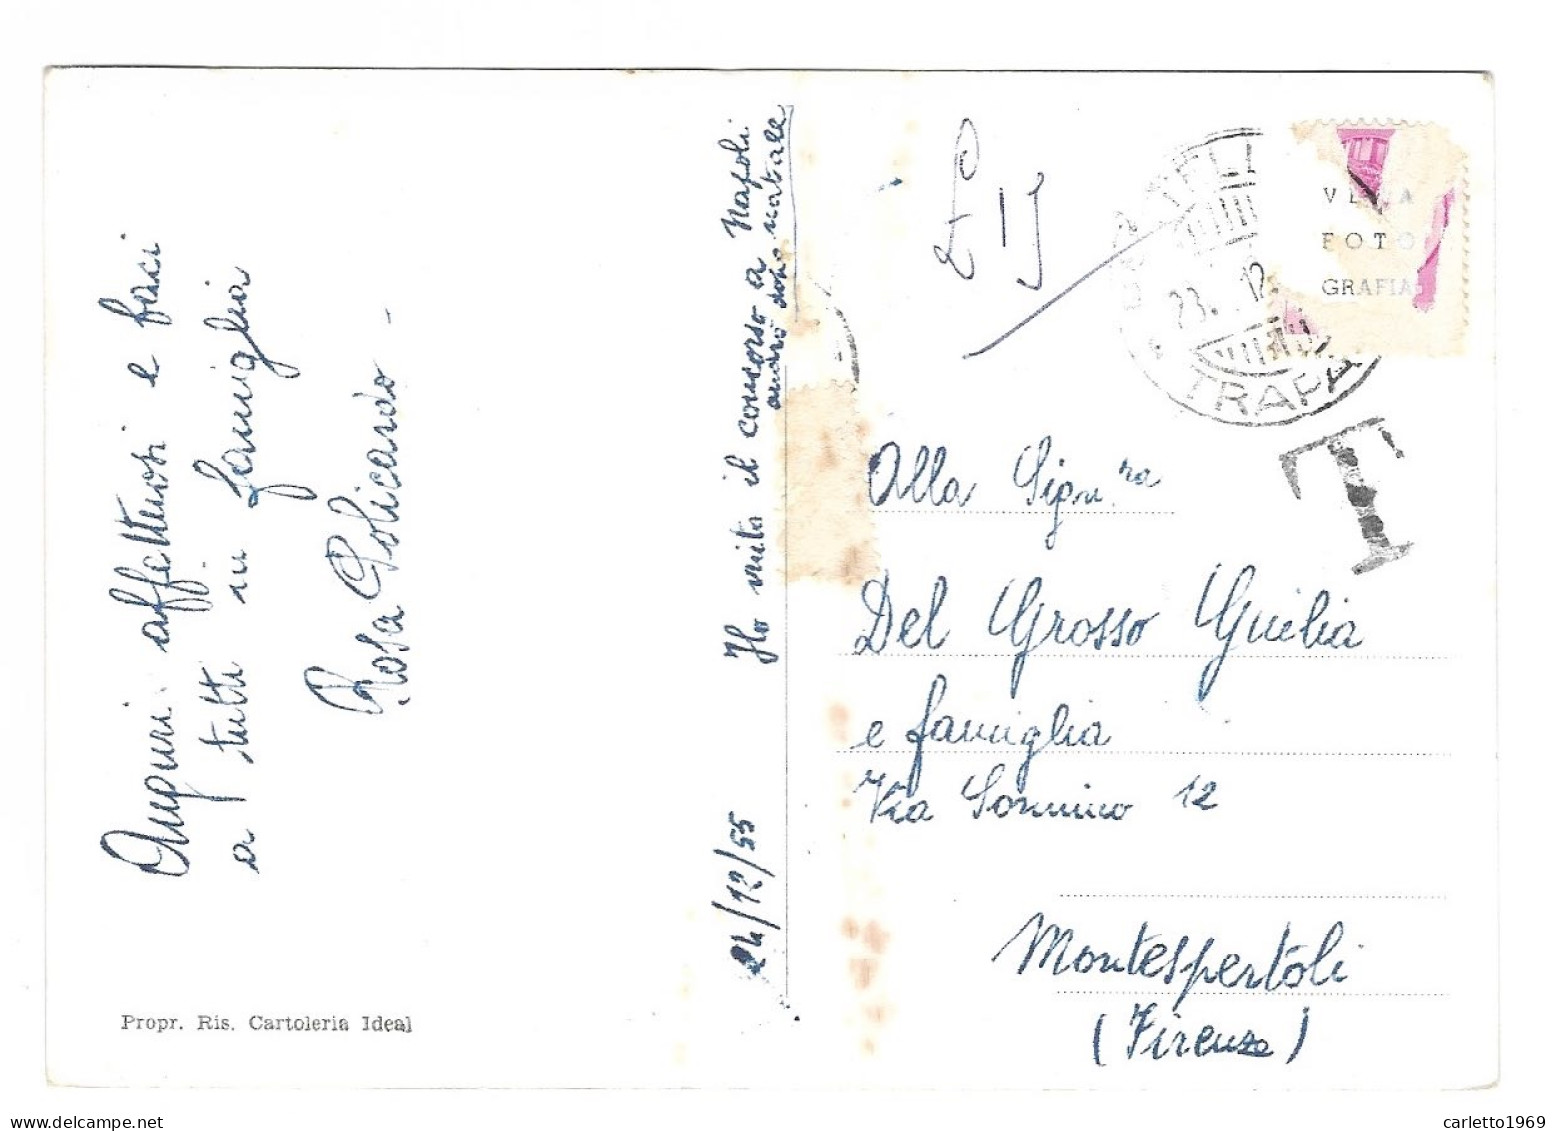 Auguri affettuosi e baci
a tutti in famiglia
Rosa Policardo -
Propr. Ris. Cartoleria Ideal
24/12/55 Ho vinto il concorso a Napoli
andrò dopo natale
£ 15
23. 12.
TRAPA
VERA
FOTO
GRAFIA
T
Alla Sign.ra
Del Grosso Guilia
e famiglia
Via Sonnino 12
Montespertoli
(Firenze)
carletto1969